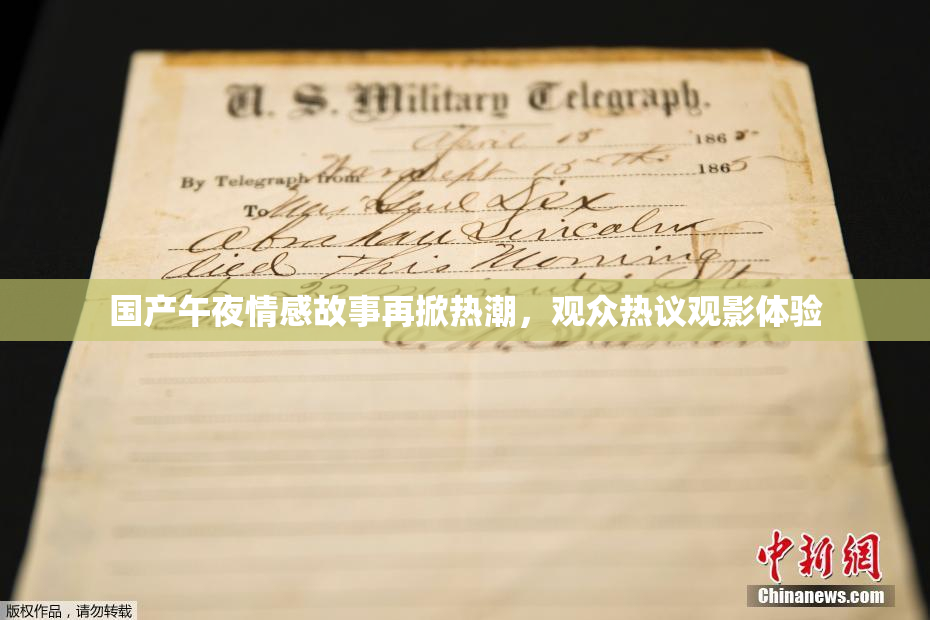 U. S. Military Telegraph.
April 15 1865
By Telegraph from War Dept 15th 1865
To Maj Genl Dix
Abraham Lincoln
died This Morning
at 22 minutes after
国产午夜情感故事再掀热潮，观众热议观影体验
E. M. Stanton
中新网
Chinanews.com
版权作品，请勿转载